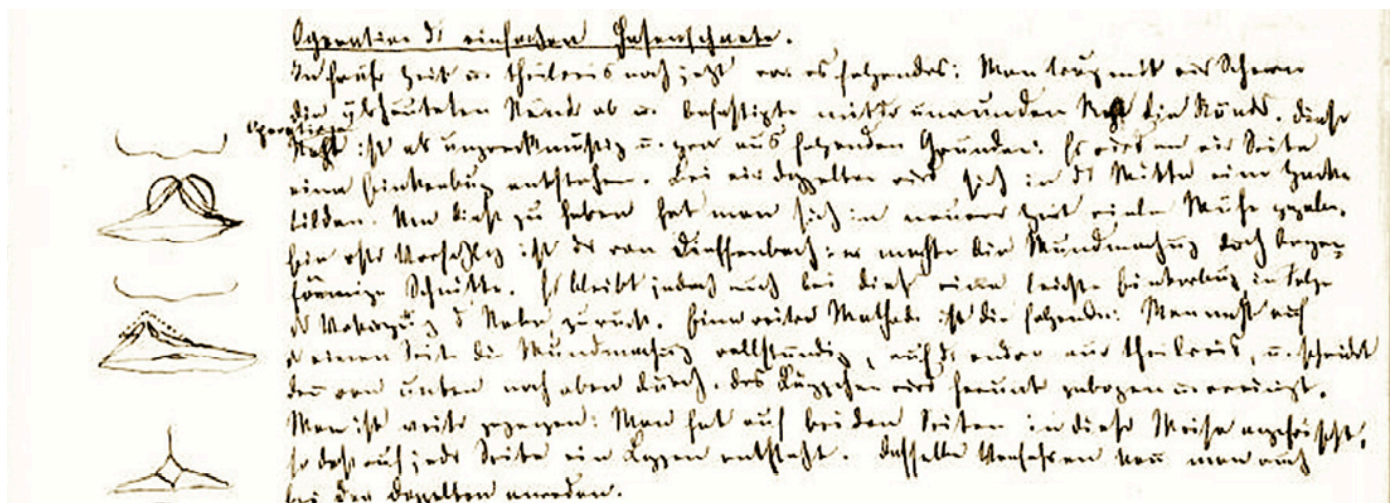 Operation d. einfachen Hasenscharte.
In früh. Zeit u. theilweis noch jetzt war es folgendes: Man trug mit ein. Scheere
die überhäuteten Ränder ab u. befestigte mit der umwundenen Naht die Ränder. Diese
Operation
Naht ist als unzweckmässig u. zwar aus folgenden Gründen: Es wird an ein. Seite
eine Einkerbung entstehen. Bei ein. doppelten wird sich in d. Mitte eine Zacke
bilden. Um dies zu heben hat man sich in neuerer Zeit viele Mühe gegeben.
Ein erster Vorschlag ist der von Dieffenbach: er machte die Wundmachung durch bogen-
förmige Schnitte. Es bleibt jedoch auch bei dieser eine leichte Einkerbung in Folge
d. Narbe zurück. Eine weitere Methode ist die folgende: Man macht auf
d. einen Seite die Wundmachung vollständig, auf d. andern nur theilweis, u. schneidet
dann von unten nach oben durch. Das Läppchen wird herunt. gebogen u. vereinigt.
Man ist weiter gegangen: Man hat auf beiden Seiten in dieser Weise angefrischt,
so dass auf jeder Seite ein Lappen entsteht. Dasselbe Verfahren kann man auch
bei der doppelten anwenden.